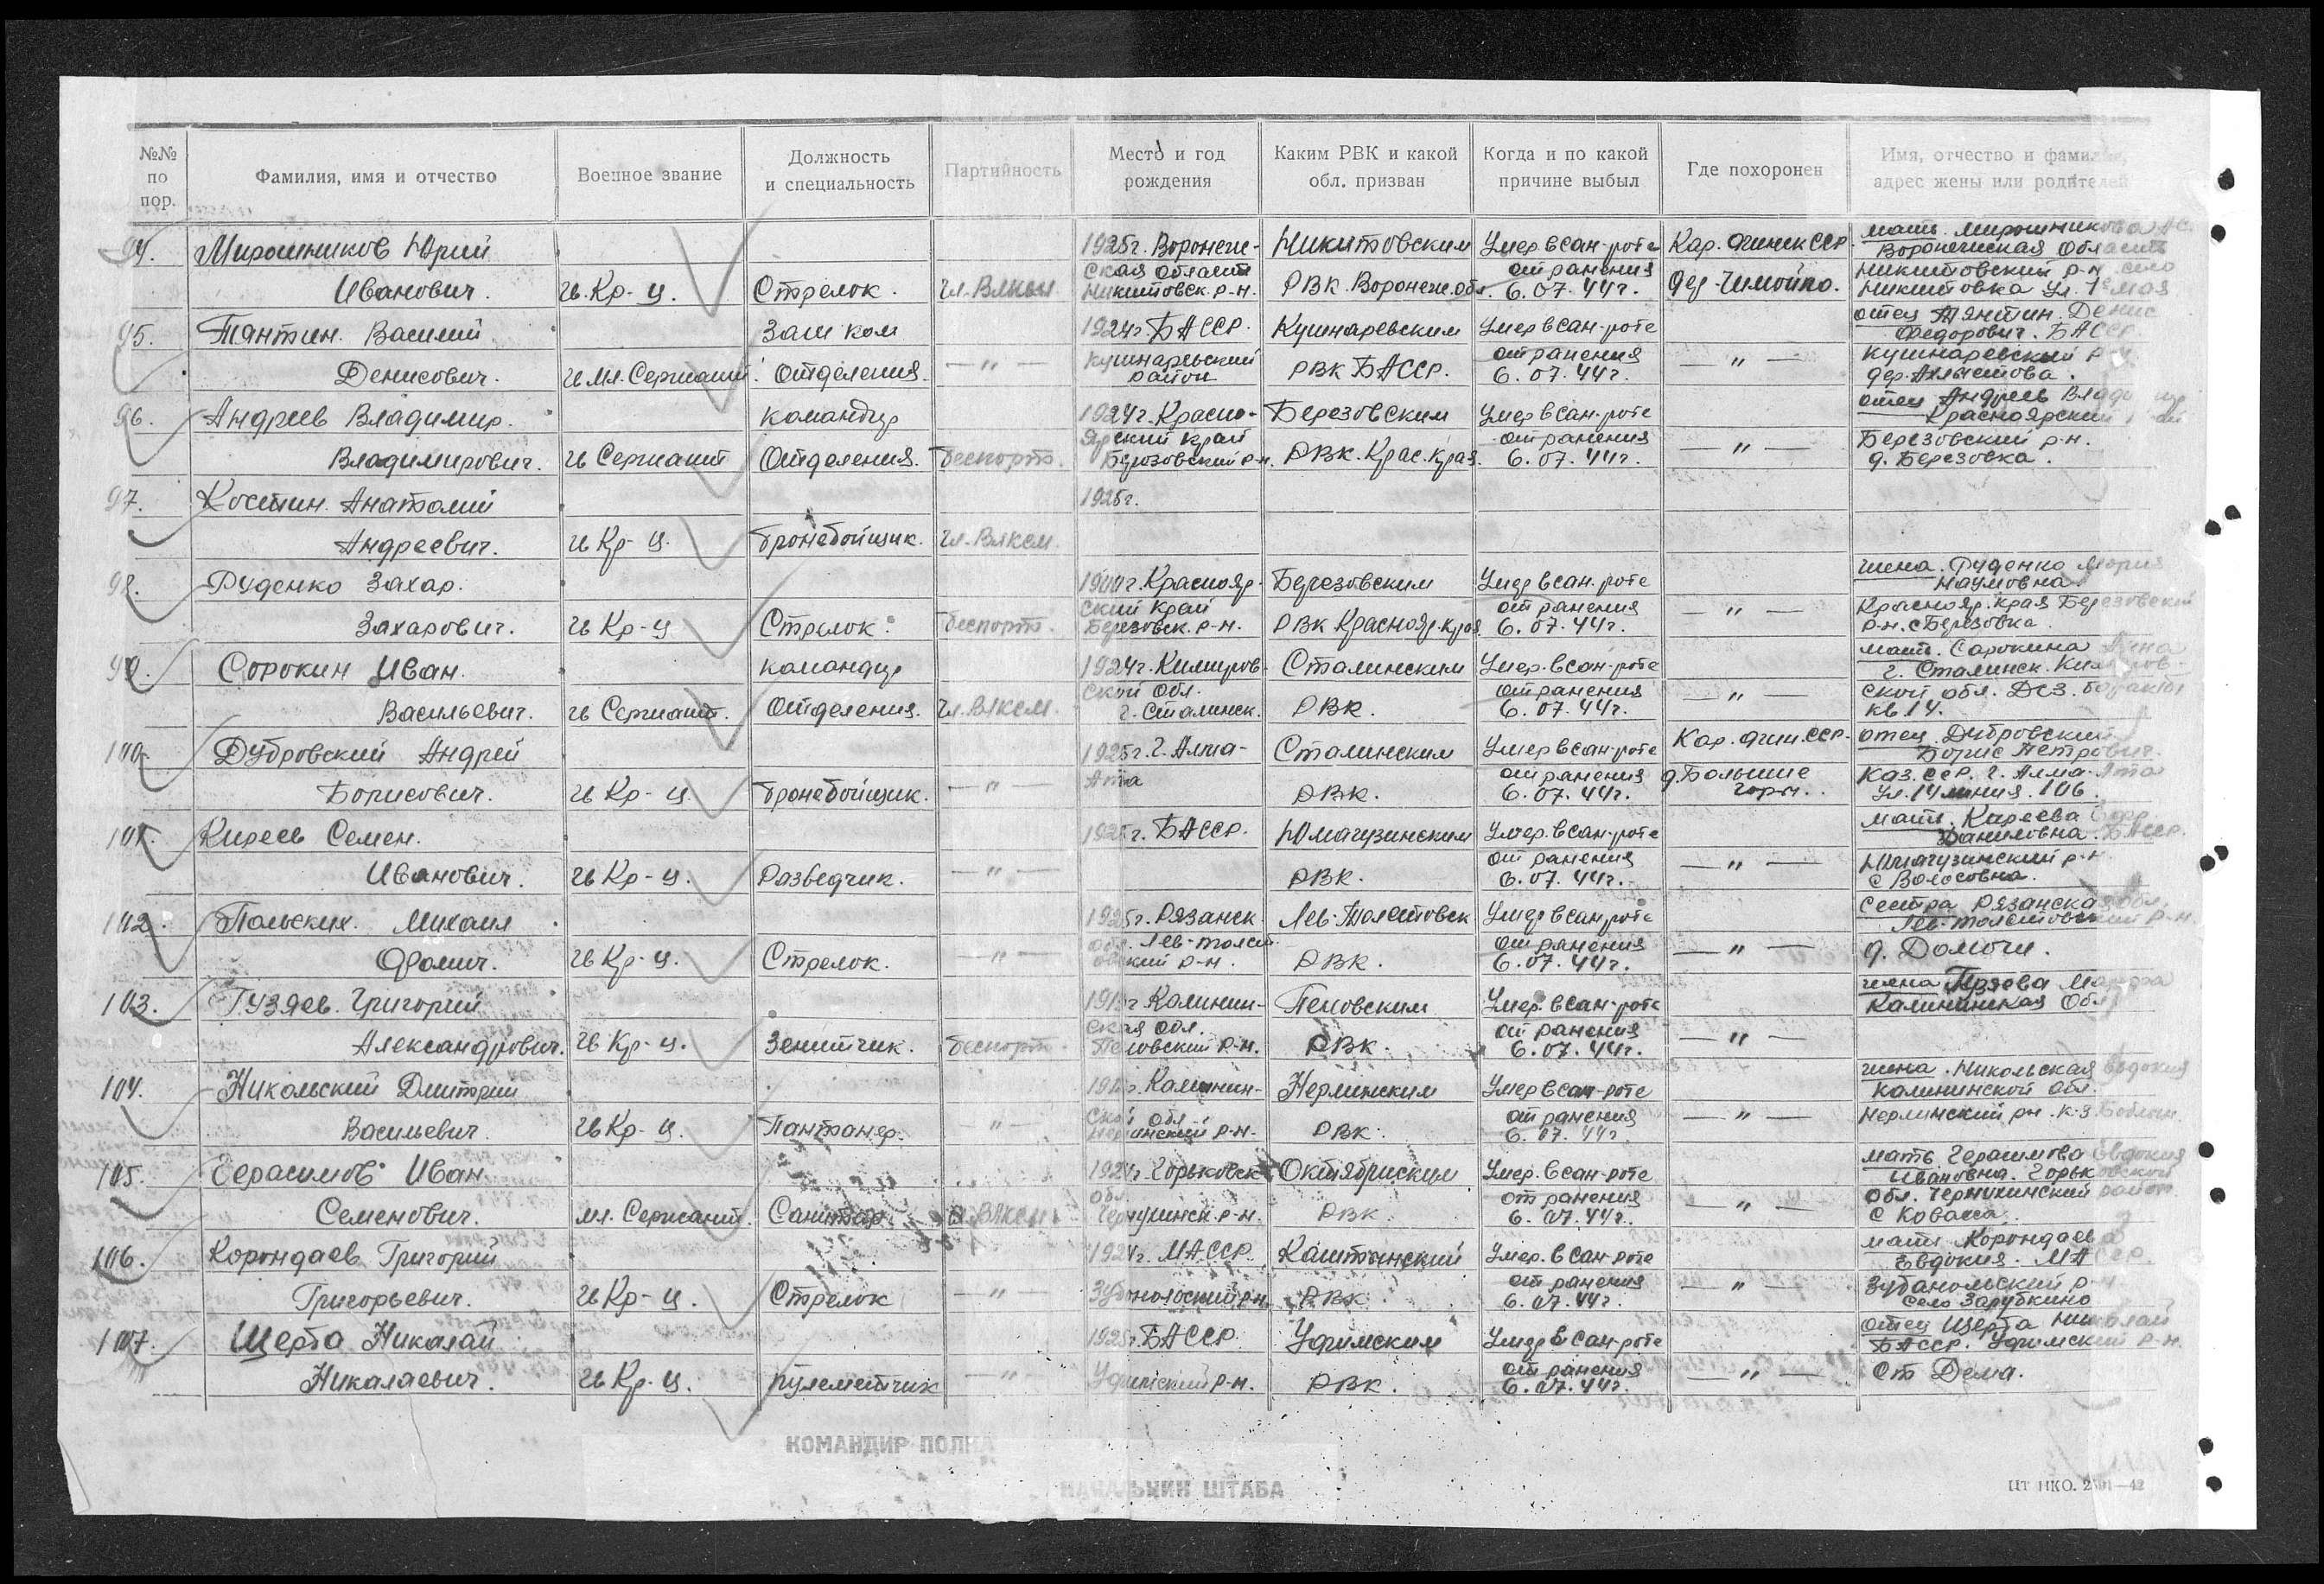 №№ по пор. Фамилия, имя и отчество Военное звание Должность и специальность Партийность Место и год рождения Каким РВК и какой обл. призван Когда и по какой причине выбыл Где похоронен Имя, отчество и фамилия, адрес жены или родителей
94. Мирошников Юрий 1925г. Воронеж- Никитовским Умер в сан-роте Кар. Финск ССР. мать Мирошникова
Воронежская Область
ская область от ранения Никитовский р-н село
Иванович. гв. Кр-ц. Стрелок. чл. ВЛКСМ Никитовск. р-н. РВК Воронеж. обл. 6.07.44г. дер. Никитовка ул. 1е мая
95. Тянтин. Василий Зам ком 1924г. БАССР. Кушнаревским Умер в сан-роте отец Тянтин. Денис
Федорович. БАССР.
Кушнаревский от ранения Кушнаревский р-н.
Денисович. гв Мл. Сержант. Отделения. — " — район РВК БАССР. 6.07.44г. — " — дер.
96. Андреев Владимир. командир 1924г. Красно- Березовским Умер в сан-роте отец Андреев
Красноярский
ярский край от ранения Березовский р-н.
Владимирович. гв Сержант Отделения. беспорт. Березовский р-н. РВК. Крас. края. 6.07.44г. — " — д. Березовка.
97. Костин. Анатолий 1925г.
Андреевич. гв Кр-ц. бронебойщик. чл. ВЛКСМ.
98. Руденко Захар. Краснояр- Березовским Умер в сан. роте жена. Руденко Мория
Наумовна
ский край от ранения Краснояр. края Березовский
Захарович. гв Кр-ц Стрелок. беспорт. Березовск. р-н. РВК Краснояр. края. 6.07.44г. — " — р-н. с Березовка.
99. Сорокин Иван. командир 1924г. Кемеров- Сталинским Умер. в сан-роте мать. Сорокина
г. Сталинск.
ской обл. от ранения ской обл.
Васильевич. гв Сержант. Отделения. чл. ВЛКСМ. г. Сталинск. РВК. 6.07.44г. — " — кв 14.
100. Дубровский Андрей 1925г. г. Алма- Сталинским Умер в сан-роте Кар. фин. ССР. отец. Дубровский
Борис Петрович.
Ата от ранения д. Большие Каз. ССР. г. Алма-Ата
Борисович. гв Кр-ц. бронебойщик. — " — РВК. 6.07.44г. горы. ул. 14 линия. 106.
101. Киреев Семен. БАССР. Юмагузинским Умер. в сан-роте мать. Киреева
Даниловна. БАССР.
от ранения Юмагузинский р-н.
Иванович. гв Кр-ц. Разведчик. — " — РВК. 6.07.44г. — " — с
102. Польских. Михаил 1925г. Рязанск. Лев-Толстовск Умер в сан роте Сестра Рязанская обл.
Лев-толстовский р-н.
обл. Лев-толст от ранения д.
Фомич. гв Кр-ц. Стрелок. — " — овский р-н. РВК. 6.07.44г. — " —
103. Гузяев. Григорий Калинин- Пеновским Умер. в сан-роте жена Гузяева
Калининская Обл
ская обл. от ранения
Александрович. гв Кр-ц. Зенитчик. беспорт. Пеновский р-н. РВК. 6.07.44г. — " —
104. Никольский Дмитрий Калинин- Нерлинским Умер в сан-роте жена. Никольская Евдокия
Калининской обл.
ской обл от ранения Нерлинский рн. к-з
Васильевич. гв Кр-ц. — " — р-н. РВК. 6.07.44г. — " —
105. Герасимов Иван 1924г. Горьковск Октябрьским Умер. в сан-роте мать Герасимова Евдокия
Ивановна. Горьковской
обл. от ранения обл. Чернухинский район
Семенович. мл. Сержант. Санитар. чл. ВЛКСМ Чернухинск. р-н. РВК. 6.07.44г. — " — с
106. Корондаев Григорий 1924г. МАССР. Умер. в сан-роте мать Корондаева
Евдокия. МАССР.
от ранения р-н
Григорьевич. гв Кр-ц. Стрелок — " — РВК. 6.07.44г. — " — село Зарубкино
107. Щерба Николай БАССР. Уфимским Умер в сан-роте отец Щерба Николай
БАССР. Уфимский р-н.
от ранения
Николаевич. гв Кр-ц. пулеметчик — " — Уфимский р-н. РВК. 6.07.44г. — " — ст Дема.
КОМАНДИР ПОЛКА
НАЧАЛЬНИК ШТАБА